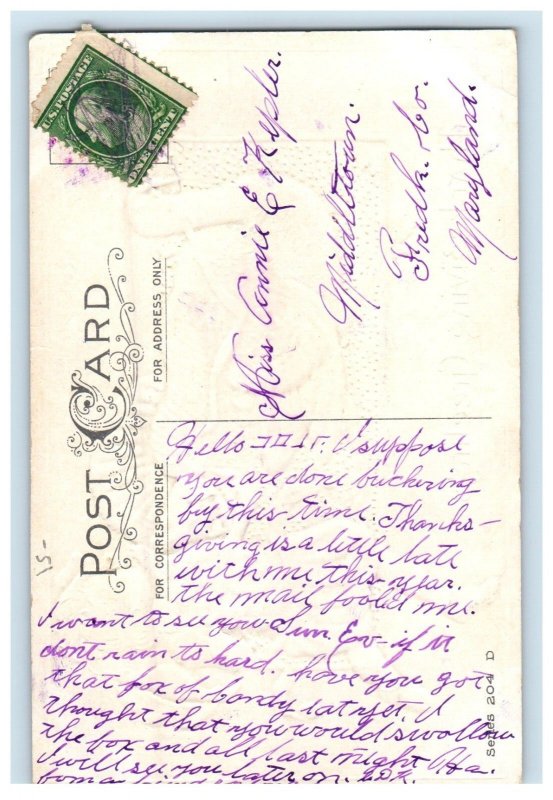 U.S. POSTAGE
ONE CENT
POST CARD
FOR ADDRESS ONLY
FOR CORRESPONDENCE
Miss Annie E Kepler.
Middletown.
Fredk. Co.
Maryland.
Hello I suppose
you are done buchering
by this time. Thanks-
giving is a little late
with me this year.
the mail fooled me.
I want to see you Sun. Ev- if it
dont rain to hard. have you got
that box of candy eat yet. I
thought that you would swallow
the box and all last night Ha.
I will see you later on.
15-
Series 204 D